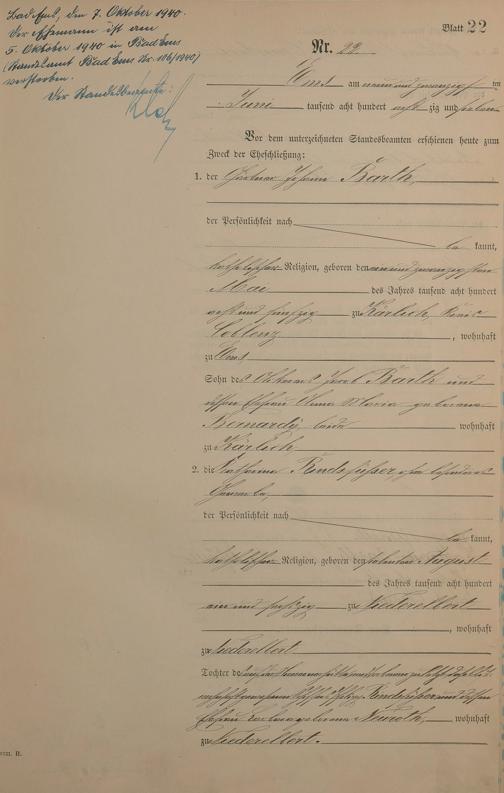 Bad Ems, den 7. Oktober 1940.
Der Ehemann ist am
5. Oktober 1940 in Bad Ems
(Standesamt Bad Ems Nr. 106/1940)
verstorben.
Der Standesbeamte:
Blatt 22
Nr. 22
Ems am neun und zwanzigsten
Juni tausend acht hundert acht zig und sieben
Vor dem unterzeichneten Standesbeamten erschienen heute zum
Zweck der Eheschließung:
1. der Johann Barth,
der Persönlichkeit nach
be kannt,
katholischer Religion, geboren den zwanzigsten
Mai des Jahres tausend acht hundert
und fünfzig zu Kärlich, Kreis
Coblenz, wohnhaft
zu Ems
Sohn des Jacob Barth und
dessen Ehefrau Anna Maria geborene
Bernardy, beide wohnhaft
zu Kärlich
2. die Katharina ohne besonderes
Gewerbe,
der Persönlichkeit nach
be kannt,
katholischer Religion, geboren den August
des Jahres tausend acht hundert
ein und sechszig zu Niederelbert
, wohnhaft
zu Niederelbert
Tochter des
und dessen
Ehefrau geborene Neuroth, wohnhaft
zu Niederelbert.